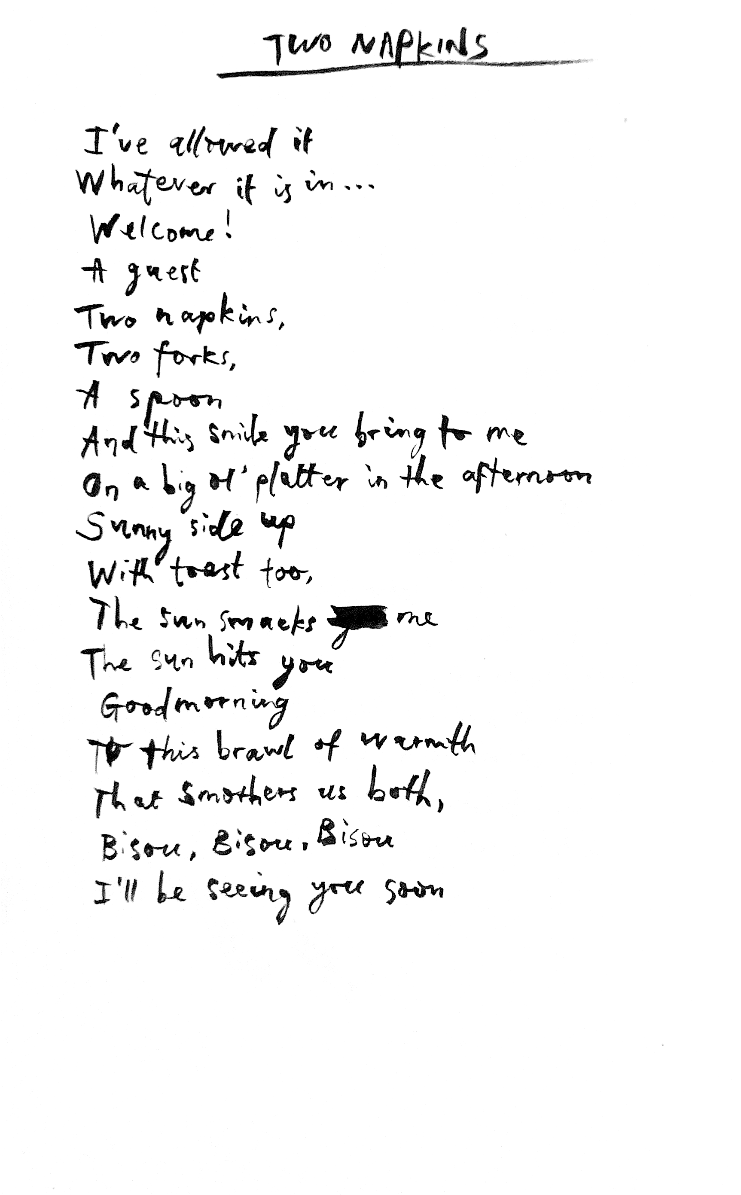 TWO NAPKINS
I've allowed it
Whatever it is in...
Welcome!
A guest
Two napkins,
Two forks,
A spoon
And this smile you bring to me
On a big ol' platter in the afternoon
Sunny side up
With toast too,
The sun smacks me
The sun hits you
Goodmorning
To this brawl of warmth
That smothers us both,
Bisou, Bisou, Bisou
I'll be seeing you soon